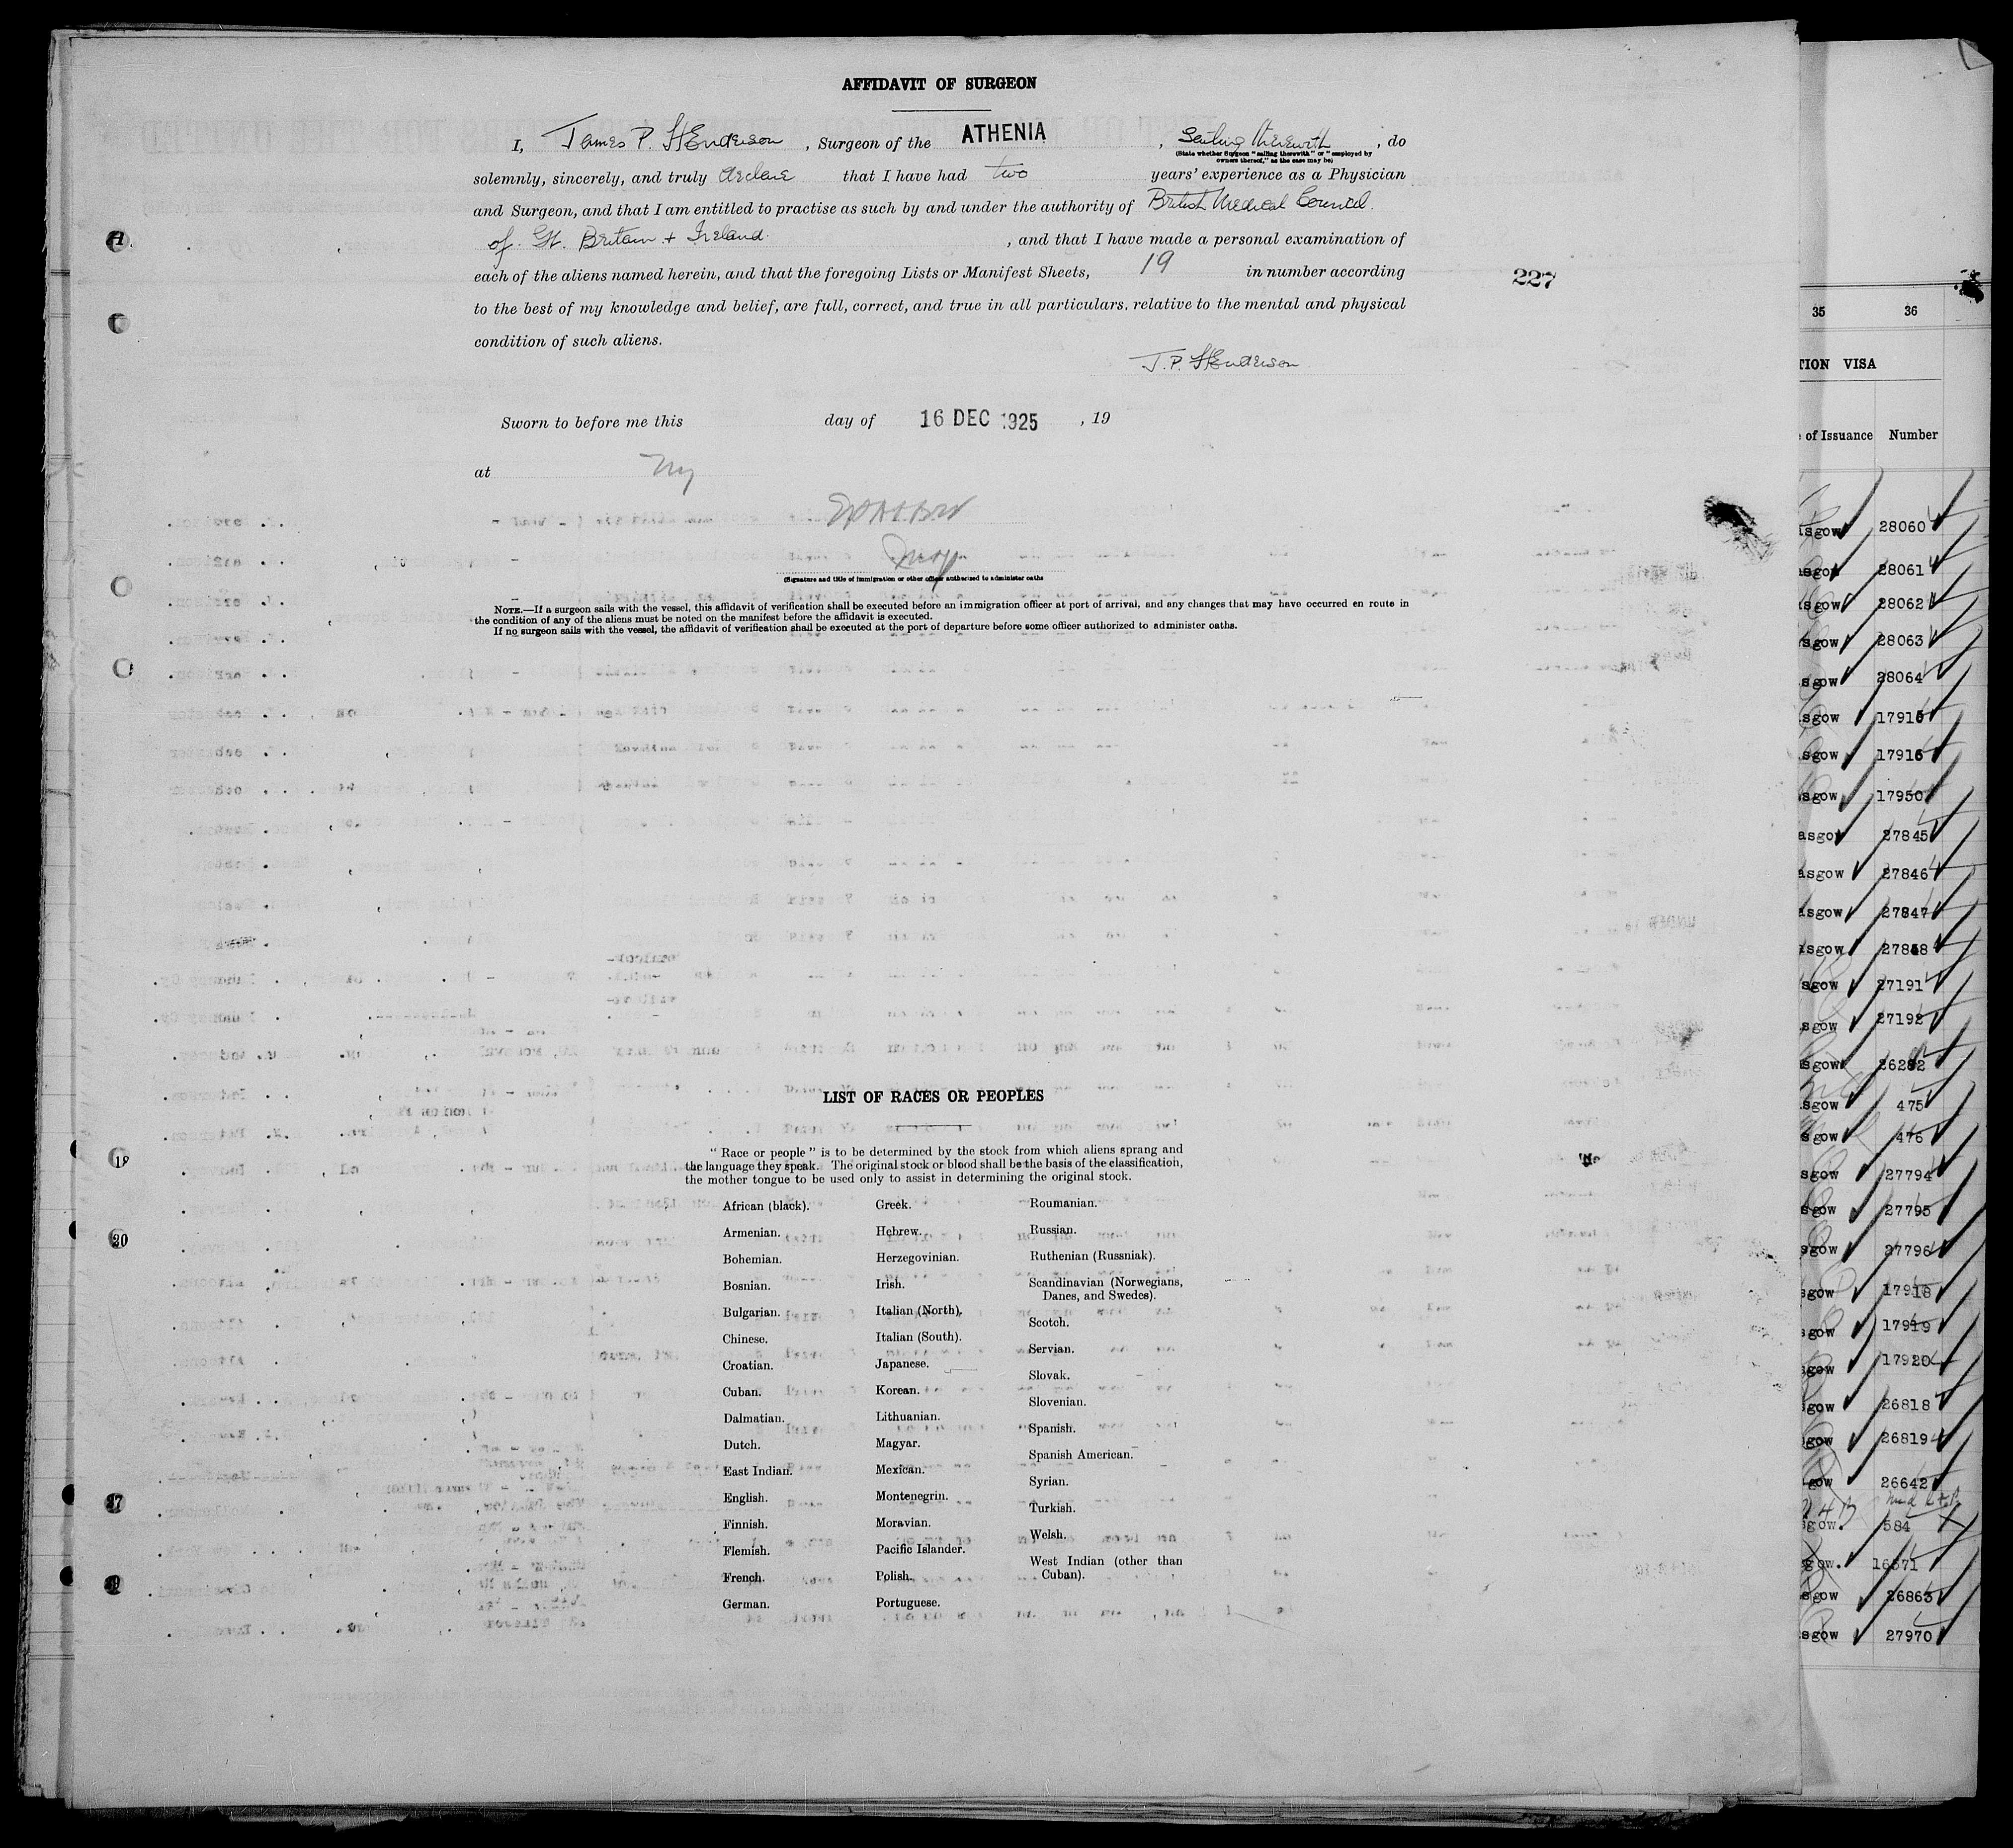 AFFIDAVIT OF SURGEON
I, James P. Henderson, Surgeon of the ATHENIA, Sailing therewith, do
(State whether Surgeon "sailing therewith" or "employed by
owners thereof," as the case may be)
solemnly, sincerely, and truly declare that I have had two years' experience as a Physician
and Surgeon, and that I am entitled to practise as such by and under the authority of British Medical Council.
of Gt. Britain + Ireland. , and that I have made a personal examination of
each of the aliens named herein, and that the foregoing Lists or Manifest Sheets, 19 in number according
227
to the best of my knowledge and belief, are full, correct, and true in all particulars, relative to the mental and physical
condition of such aliens.
J. P. Henderson
Sworn to before me this day of 16 DEC 1925, 19
at NY
(Signature and title of immigration or other officer authorized to administer oaths
NOTE.—If a surgeon sails with the vessel, this affidavit of verification shall be executed before an immigration officer at port of arrival, and any changes that may have occurred en route in
the condition of any of the aliens must be noted on the manifest before the affidavit is executed.
If no surgeon sails with the vessel, the affidavit of verification shall be executed at the port of departure before some officer authorized to administer oaths.
LIST OF RACES OR PEOPLES
"Race or people" is to be determined by the stock from which aliens sprang and
the language they speak. The original stock or blood shall be the basis of the classification,
the mother tongue to be used only to assist in determining the original stock.
African (black).
Armenian.
Bohemian.
Bosnian.
Bulgarian.
Chinese.
Croatian.
Cuban.
Dalmatian.
Dutch.
East Indian.
English.
Finnish.
Flemish.
French.
German.
Greek.
Hebrew.
Herzegovinian.
Irish.
Italian (North).
Italian (South).
Japanese.
Korean.
Lithuanian.
Magyar.
Mexican.
Montenegrin.
Moravian.
Pacific Islander.
Polish.
Portuguese.
Roumanian.
Russian.
Ruthenian (Russniak).
Scandinavian (Norwegians,
Danes, and Swedes).
Scotch.
Servian.
Slovak.
Slovenian.
Spanish.
Spanish American.
Syrian.
Turkish.
Welsh.
West Indian (other than
Cuban).
35 36
TION VISA
of Issuance Number
asgow 28060
asgow 28061
sgow 28062
sgow 28063
sgow 28064
sgow 17915
sgow 17916
sgow 17950
asgow 27845
asgow 27846
asgow 27847
asgow 27848
sgow 27191
sgow 27192
sgow 26282
sgow 475
sgow 476
sgow 27794
sgow 27795
sgow 27796
sgow 17918
sgow 17919
sgow 17920
sgow 26818
gow 26819
gow 26642
gow. 584
gow. 16571
sgow 26863
sgow 27970